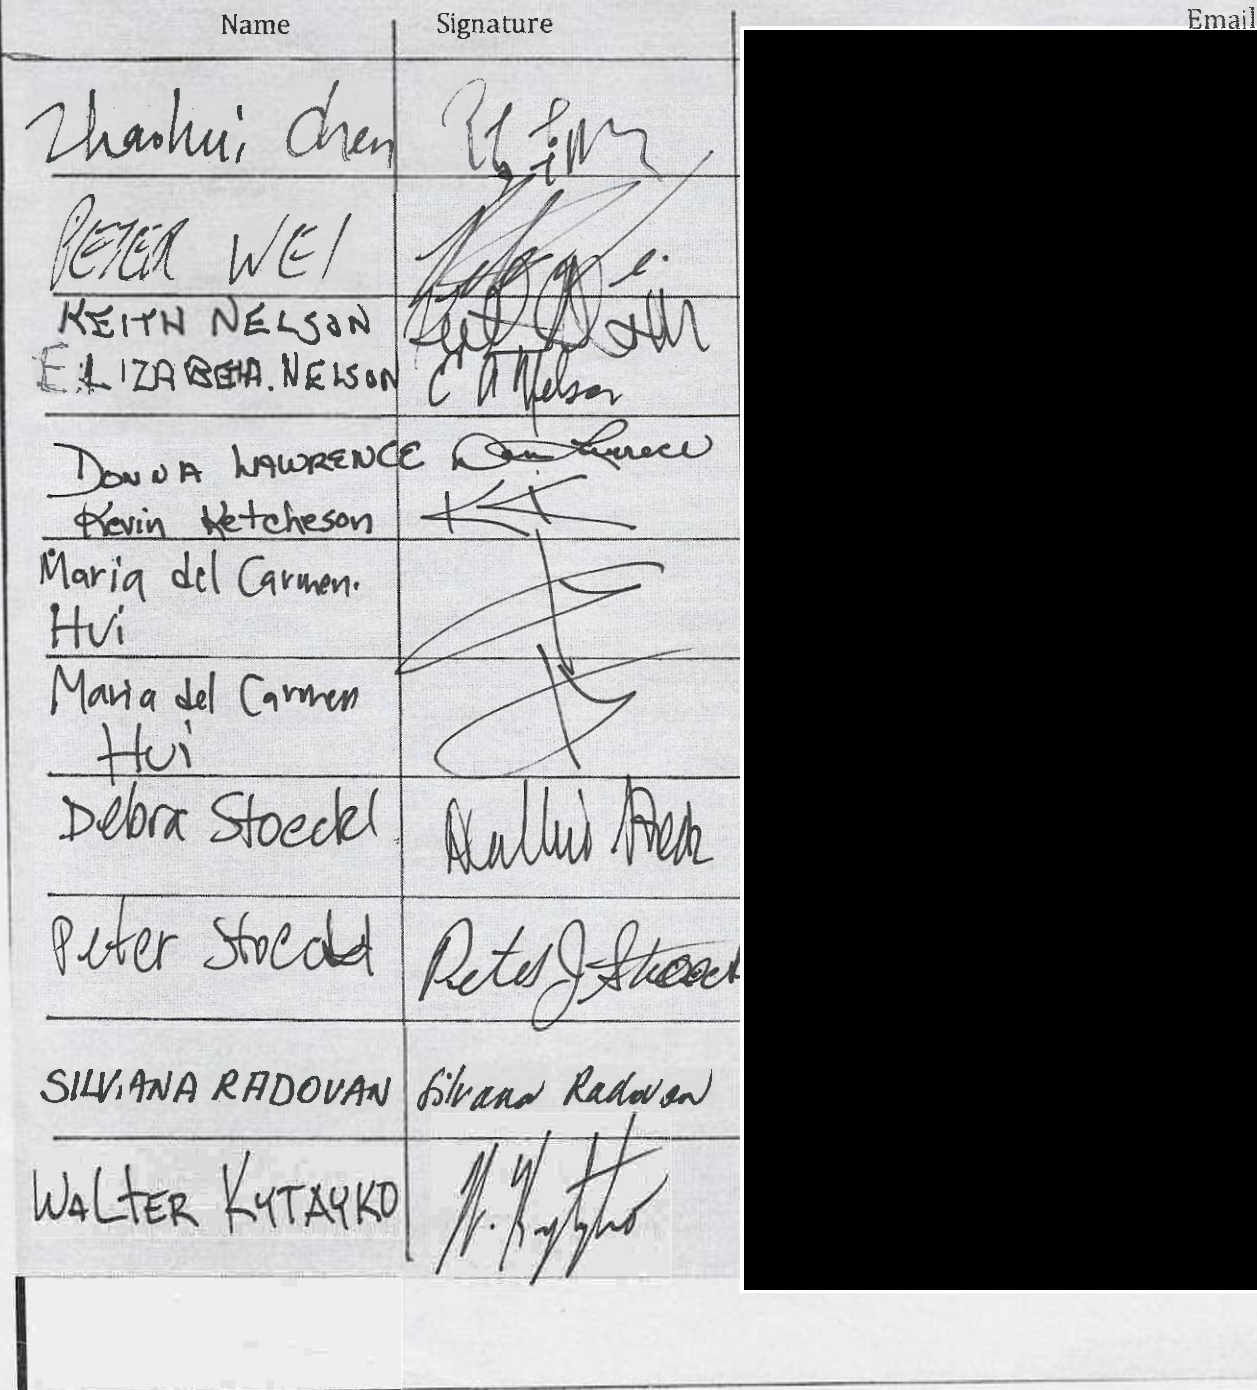 Name Signature Email
Zhaohui Chen
PETER WEI
KEITH NELSON
ELIZABETH A. NELSON C A Nelson
DONNA LAWRENCE
Kevin Ketcheson KK
Maria del Carmen.
Hui
Maria del Carmen
Hui
Debra Stoeckl
Peter Stoeckl Peter J Stoeckl
SILVIANA RADOVAN Silvana Radovan
WALTER KYTAYKO W. Kytayko